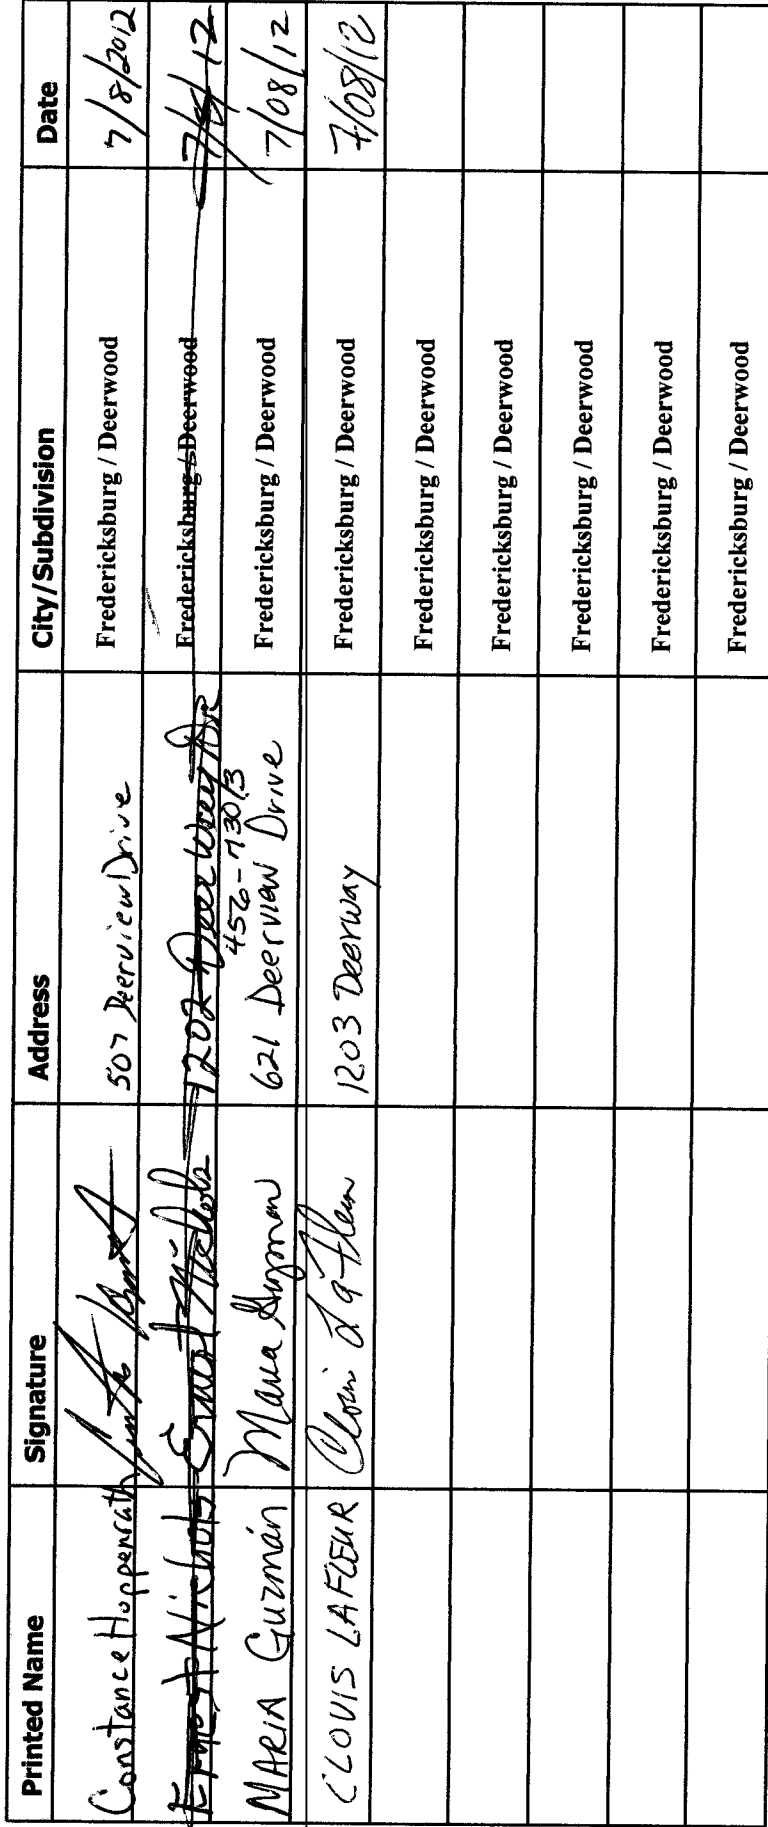 Printed Name Signature Address City/Subdivision Date
Constance Hoppenrath 507 Deerview Drive Fredericksburg / Deerwood 7/8/2012
Ernest Nichols Ernest Nichols 1202 Deer Way Dr Fredericksburg / Deerwood 7/8/12
MARIA Guzmán Maria Guzman 621 Deerview Drive Fredericksburg / Deerwood 7/08/12
CLOVIS LAFLEUR Clovis LaFleur 1203 Deerway Fredericksburg / Deerwood 7/08/12
Fredericksburg / Deerwood
Fredericksburg / Deerwood
Fredericksburg / Deerwood
Fredericksburg / Deerwood
Fredericksburg / Deerwood